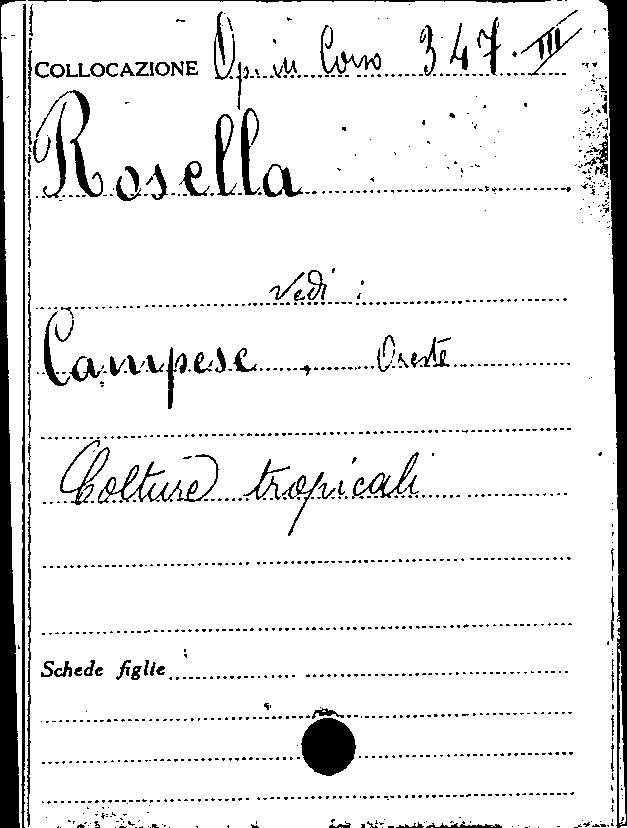 COLLOCAZIONE Op. in Corso 347. III
Rosella
Vedi :
Campese, Oreste
Colture tropicali
Schede figlie